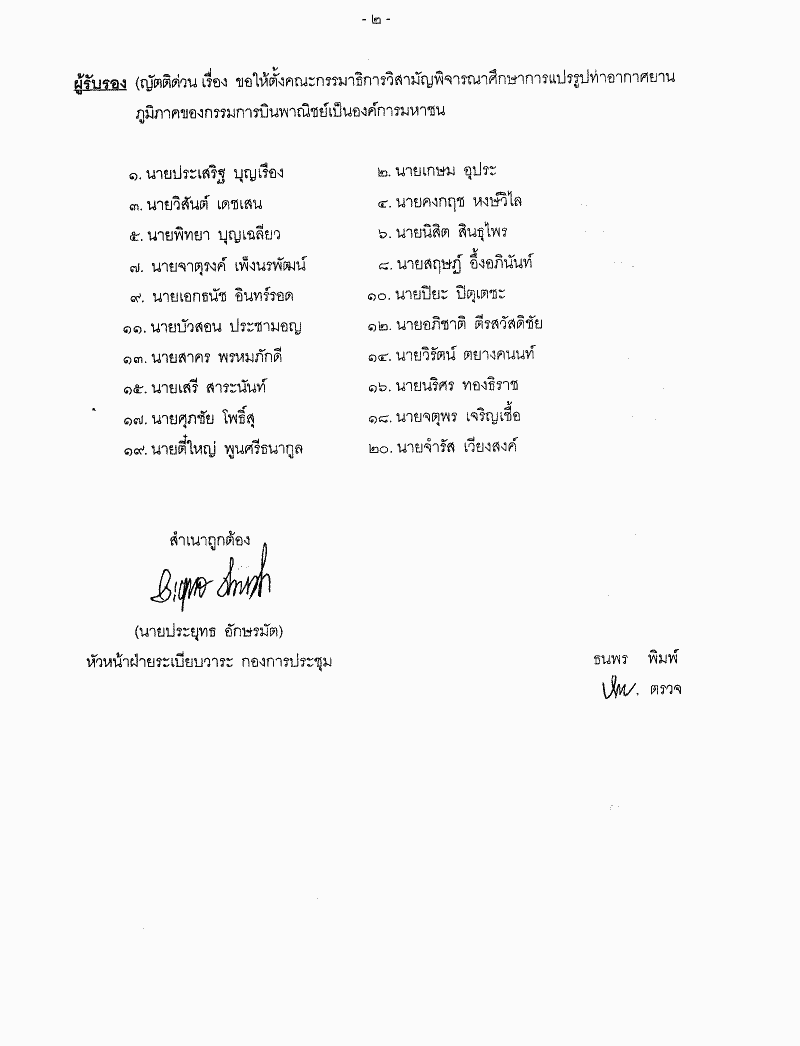 - ๒ -
ผู้รับรอง (ญัตติด่วน เรื่อง ขอให้ตั้งคณะกรรมาธิการวิสามัญพิจารณาศึกษาการแปรรูปท่าอากาศยาน
ภูมิภาคของกรรมการบินพาณิชย์เป็นองค์การมหาชน
๑. นายประเสริฐ บุญเรือง ๒. นายเกษม อุประ
๓. นายวิสันต์ เดชเสน ๔. นายคงกฤช หงษ์วิไล
๕. นายพิทยา บุญเฉลียว ๖. นายนิสิต สินธุไพร
๗. นายจาตุรงค์ เพ็งนรพัฒน์ ๘. นายสฤษฏ์ อึ้งอภินันท์
๙. นายเอกธนัช อินทร์รอด ๑๐. นายปิยะ ปิตุเตชะ
๑๑. นายบัวสอน ประชามอญ ๑๒. นายอภิชาติ ตีรสวัสดิชัย
๑๓. นายสาคร พรหมภักดี ๑๔. นายวิรัตน์ ตยางคนนท์
๑๕. นายเสรี สาระนันท์ ๑๖. นายนริศร ทองธิราช
๑๗. นายศุภชัย โพธิ์สุ ๑๘. นายจตุพร เจริญเชื้อ
๑๙. นายตี๋ใหญ่ พูนศรีธนากูล ๒๐. นายจำรัส เวียงสงค์
สำเนาถูกต้อง
(นายประยุทธ อักษรมัต)
หัวหน้าฝ่ายระเบียบวาระ กองการประชุม
ธนพร พิมพ์
ตรวจ